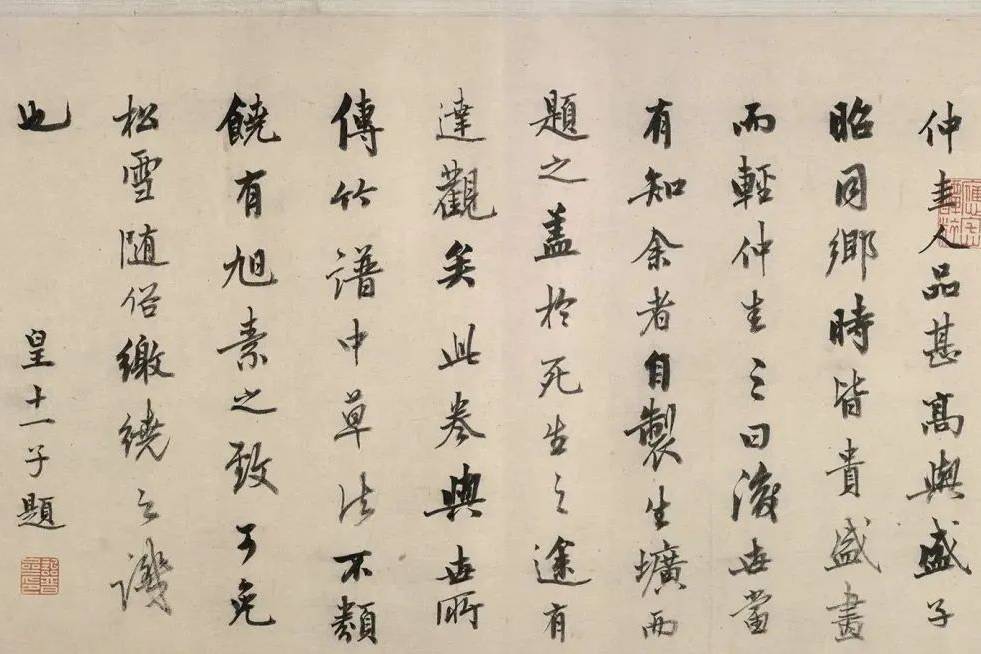 仲圭人品甚高與盛子
昭同鄉時皆貴盛畫
而輕仲圭之曰後世當
有知余者自製生壙而
題之盖於死生之途有
達觀矣此卷與世所
傳竹譜中草法不類
饒有旭素之致可免
松雪随俗繳繞之譏
也
皇十一子題